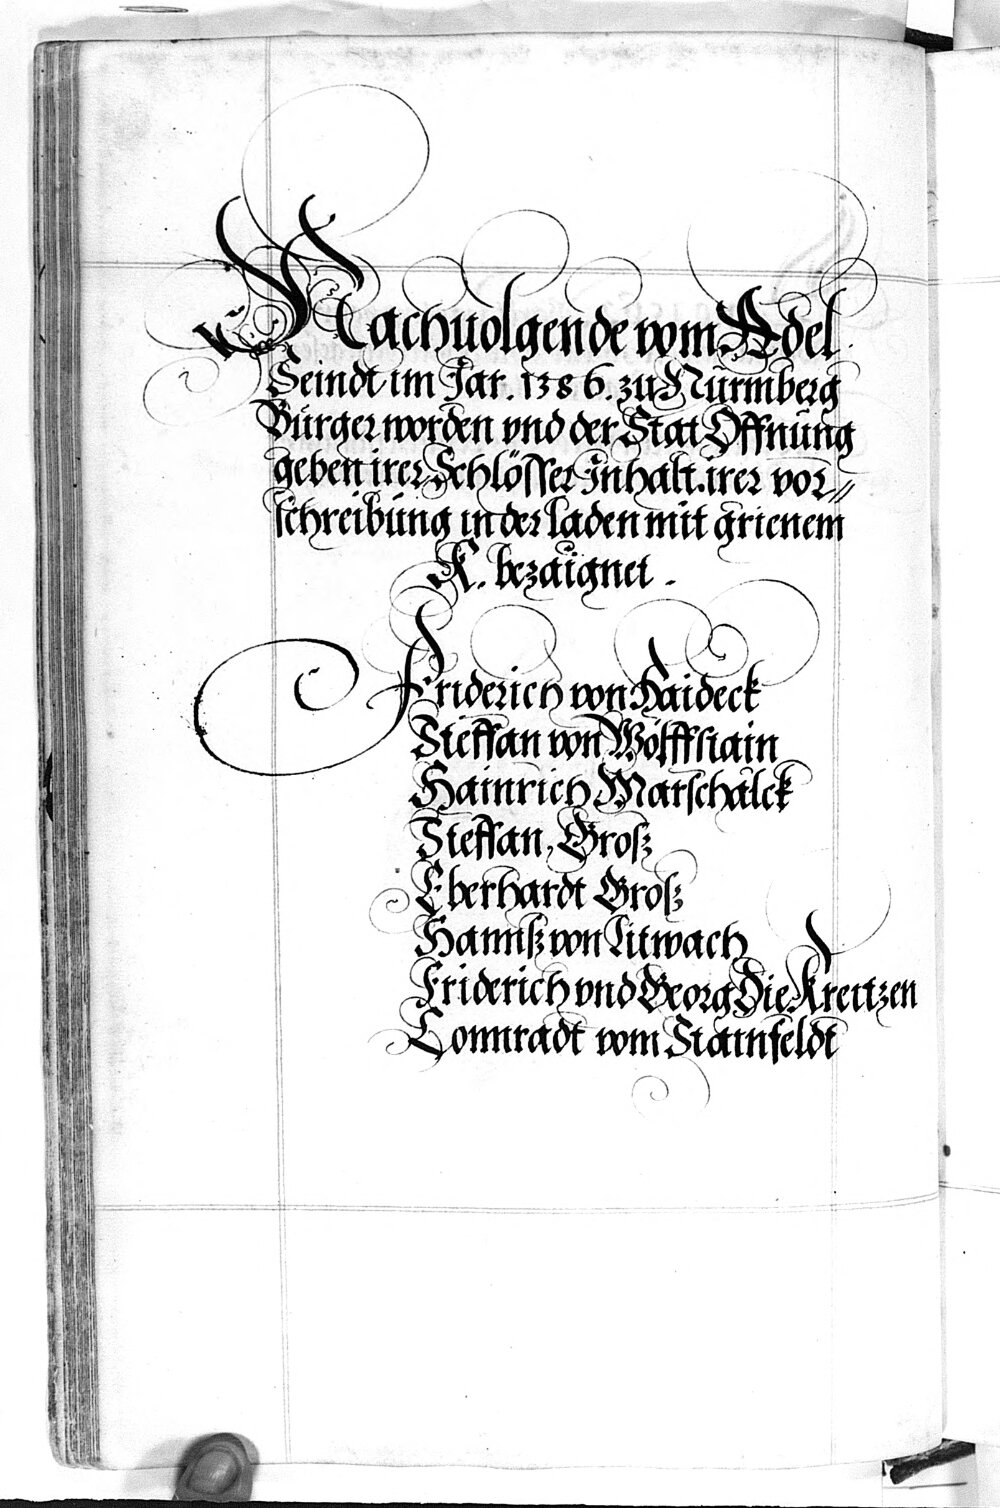 Nachuolgende vom Adel
Seindt im Jar. 1386. zu Nürmberg
Bürger worden vnd der Stat Öffnung
geben irer Schlösser Inhalt. irer vor⸗
schreibüng in der laden mit grienem
K. bezaignet .
Friderich von Haideck
Steffan von Wolffstain
Hainrich Marschalck
Steffan, Groß
Eberhardt Groß
Hannß von Litwach
Friderich vnd Georg Die Kreitzen
Connradt vom Stainfeldt